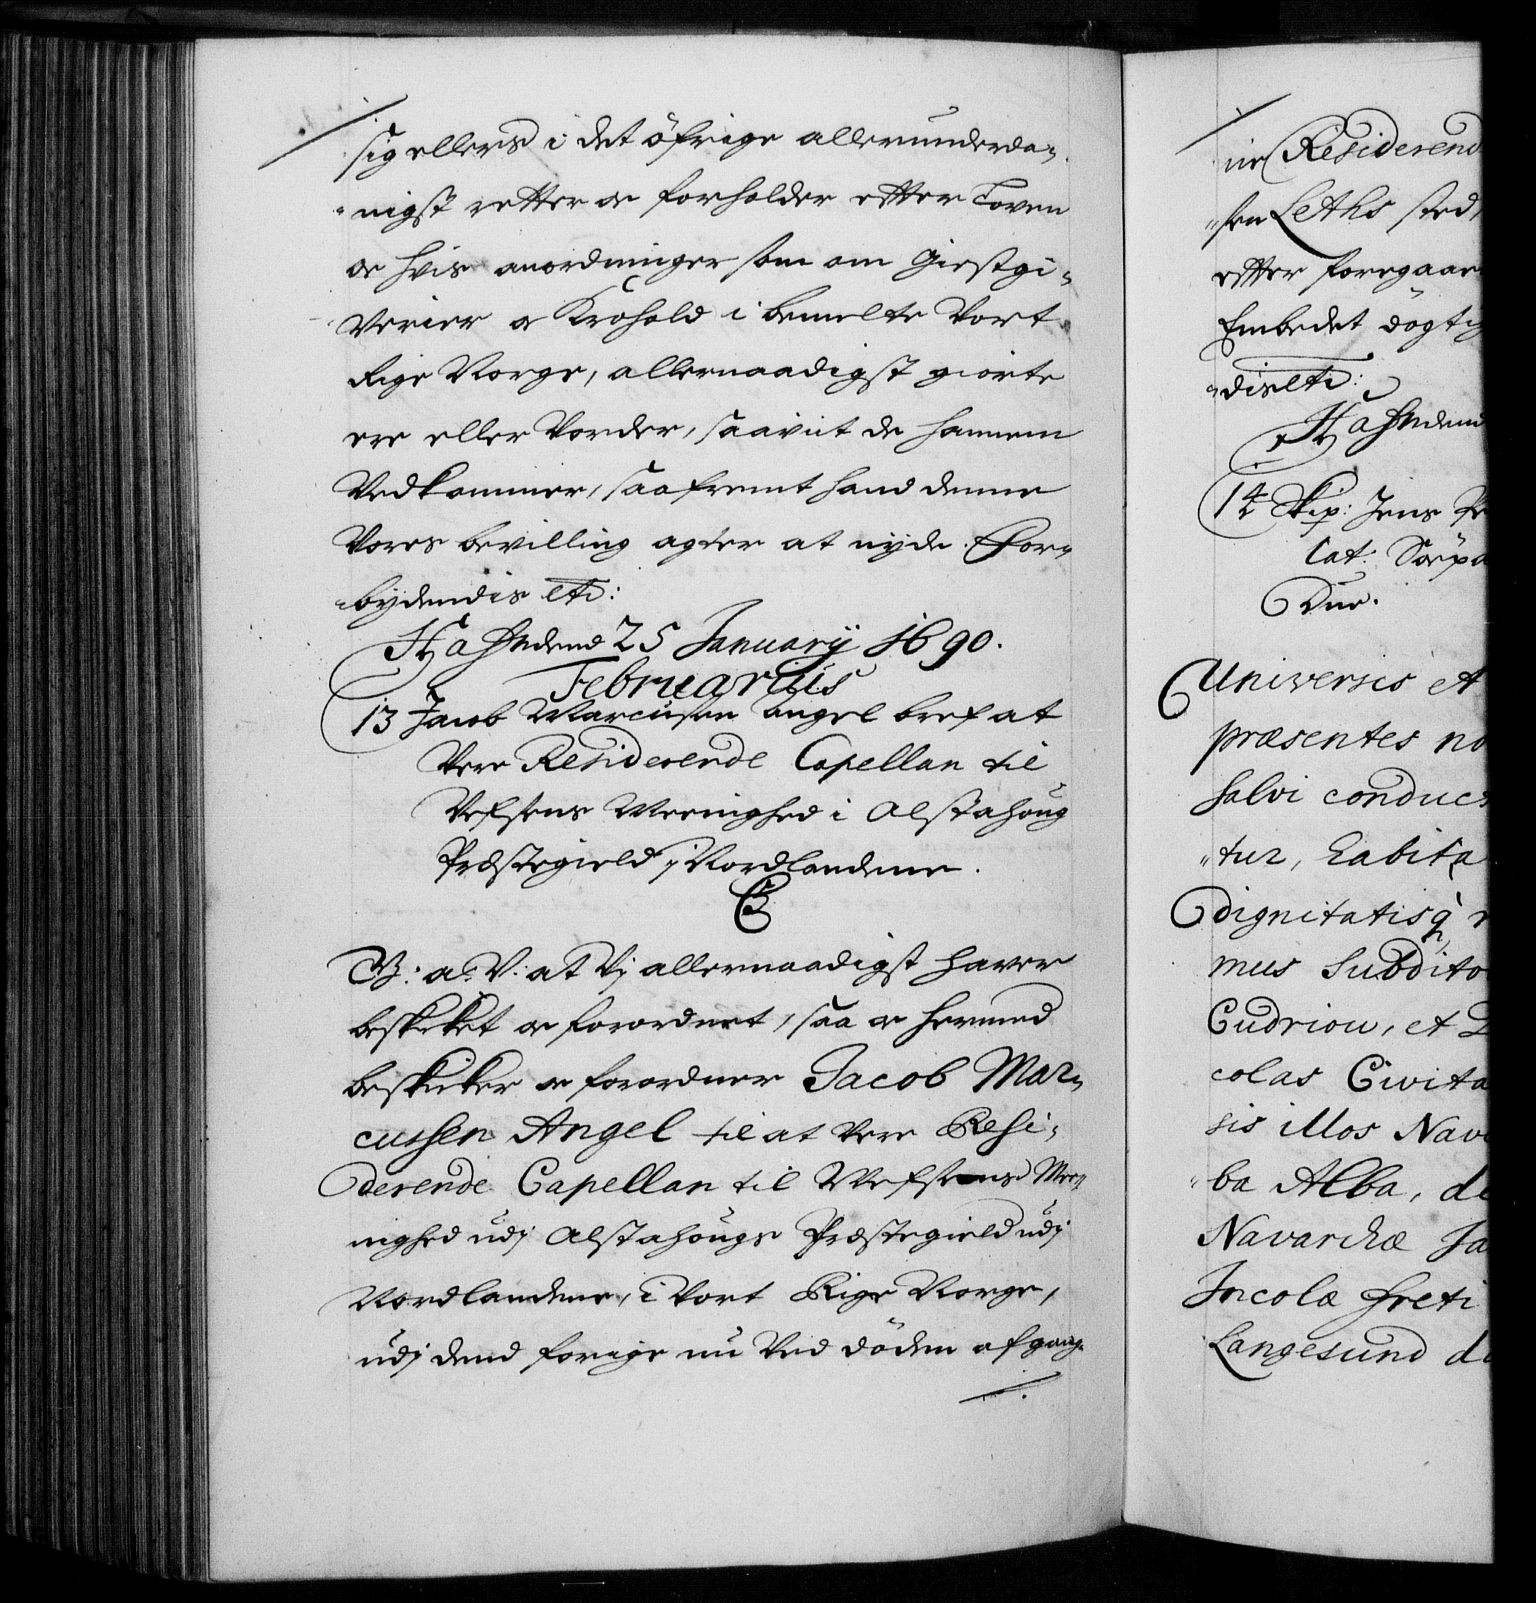 sig ellers i det öfrige allerunderda-
nigst retter oc forholder efter Loven
oc hvis anordninger som om Giestgi-
Verier oc Krohold i bemelte Vort
Rige Norge, allernaadigst giorte
ere eller Vorder, saavit de hannem
Vedkommer, saafremt hand denne
Vores bevilling agter at nyde. For-
bydendis etc:
Hafn dend 25 January 1690.
Februarius
13 Jacob Marcussen Angel bref at
Vere Residerende Capellan til
Vefsens Meenighed i Alstahoug
Præstegield, i Nordlandene.
C5
G: a: V: at Vj allernaadigst hafver
beskicket oc forordnet, saa oc hermed
beskicker oc forordner Jacob Mar-
cussen Angel til at Vere Resi-
derende Capellan til Wefsens Mee-
nighed udj Alstahougs Præstegield udj
Nordlandene, i Vort Rige Norge,
udj dend forige nu Ved döden afgang-
ne Residerend
sen Leths sted,
efter foregaae
Embedet dögtig
dis etc:
Hafn dend
14 Skip: Jens
Cat:
Due.
Universis et
præsentes no
salvi conduct
tur, habita
dignitatisq
mus Subdito
Cudriou, et
colas Civita
sis illos Nav
ba Alba, de
Navarchæ Ja
Incolæ freti
Langesund de